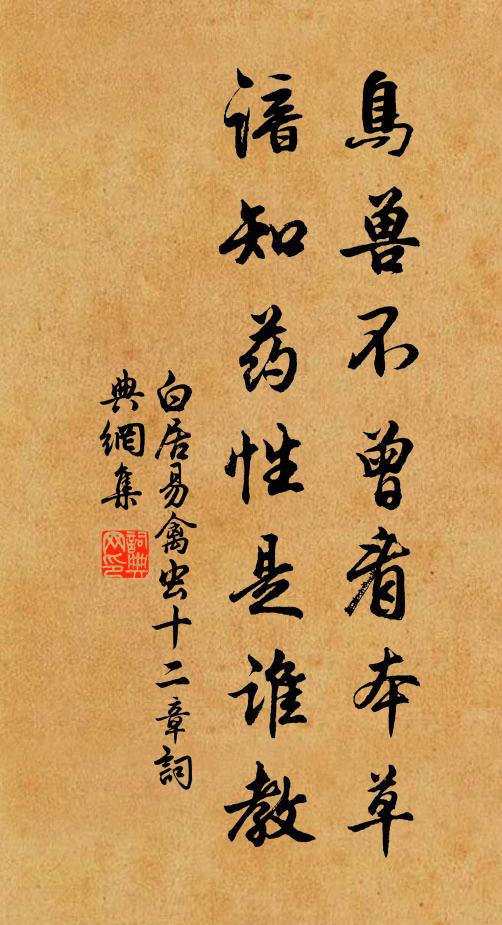 鳥兽不曾看本草
谙知药性是谁教
白居易禽虫十二章詞
典網集
詞典
网印